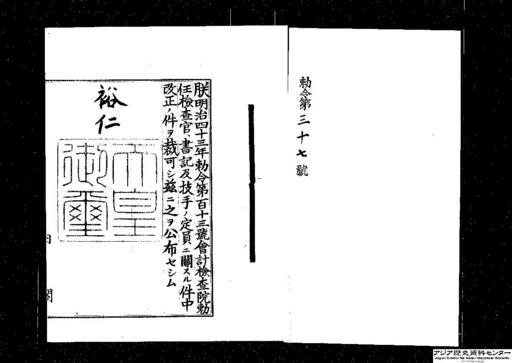 勅令第三十七號
朕明治四十三年勅令第百十三號會計檢査院勅
任檢査官、書記及技手ノ定員ニ關スル件中
改正ノ件ヲ裁可シ茲ニ之ヲ公布セシム
裕仁
天皇御璽
内閣
アジア歴史資料センター
Japan Center for Asian Historical Records